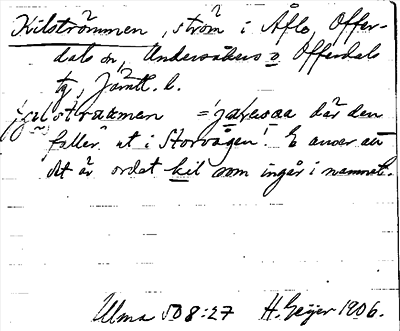 Kilströmmen, ström i Åflo, Offer-
dals sn, Undersåkers o Offerdals
tg, Jämtl. l.
=järsåa där den
faller ut i Storvågen! E anser att
det är ordet kil som ingår i namnet.
Ulma 508:27 H. Geijer 1906.